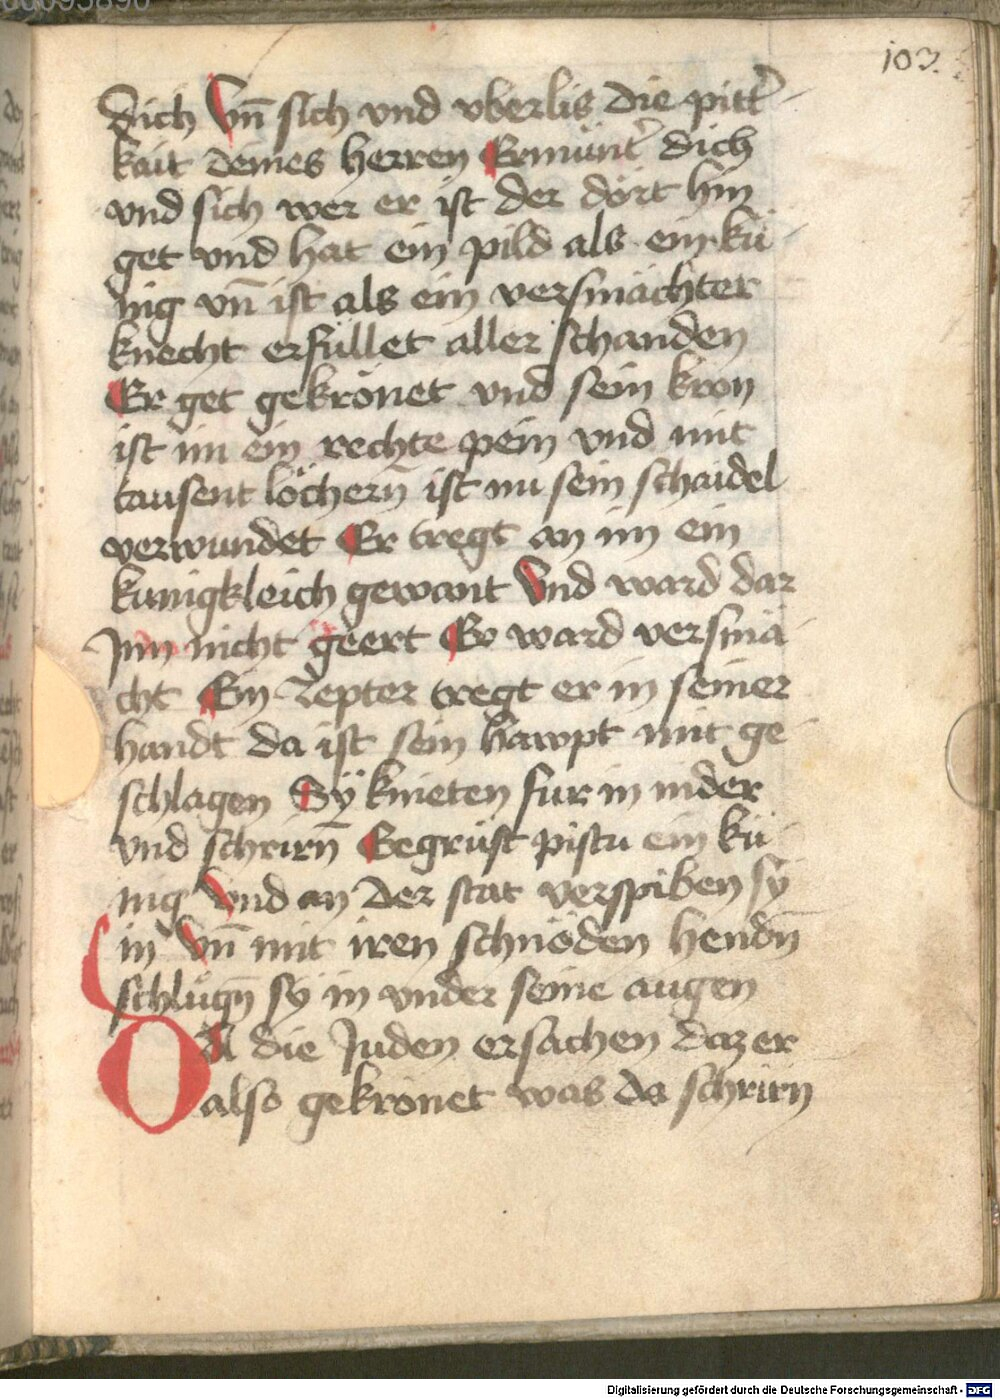 103.
dich Vn̄ sich vnd vberlis die pitt͛
kait deines herren Ermunt͛ dich
vnd sich wer er ist der dört hin
get vnd hat ein pild als ein kü
nig vn̄ ist als ein versmächter
knecht erfüllet aller schanden
Er get gekrönet vnd sein kron
ist im ein rechte pein vnd mit
tausent löchern̄ ist im sein schaidel
verwundet Er tregt an im ein
kunigkleich gewant Vnd ward dar
Jnn nicht geert Er ward versmä
cht Ein Zepter tregt er in seiner
handt da ist sein hawpt mit ge
schlagen Sÿ knieten fur in nider
vnd schrirn̄ Gegrüst pistu ein kü
nig Vnd an der stat verspiben sÿ
in Vn̄ mit iren schnöden hendn̄
schlügn̄ sÿ in vnder seine augen
DA die Juden ersachen daz er
also gekrönet was da schrirn
Digitalisierung gefördert durch die Deutsche Forschungsgemeinschaft - DFG